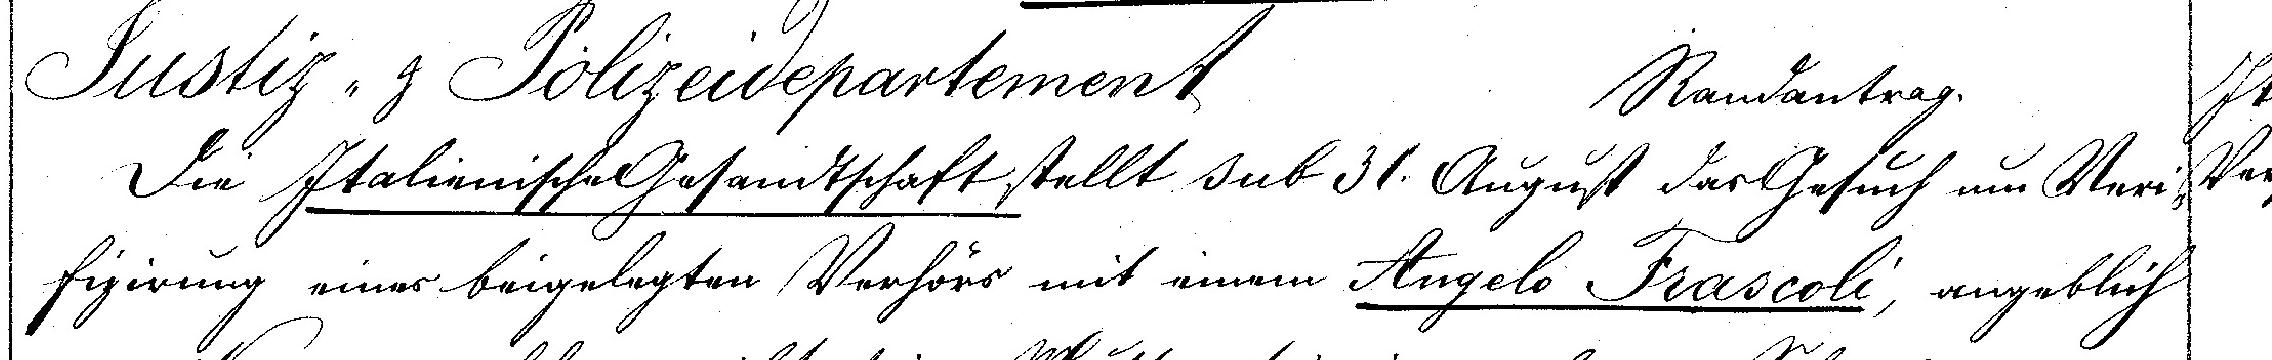 Justiz- & Polizeidepartement Randantrag.
Die Italienische Gesandtschaft stellt sub 31. August das Gesuch um Veri-
fizirung eines beigelegten Verhörs mit einem Angelo Frascoli, angeblich